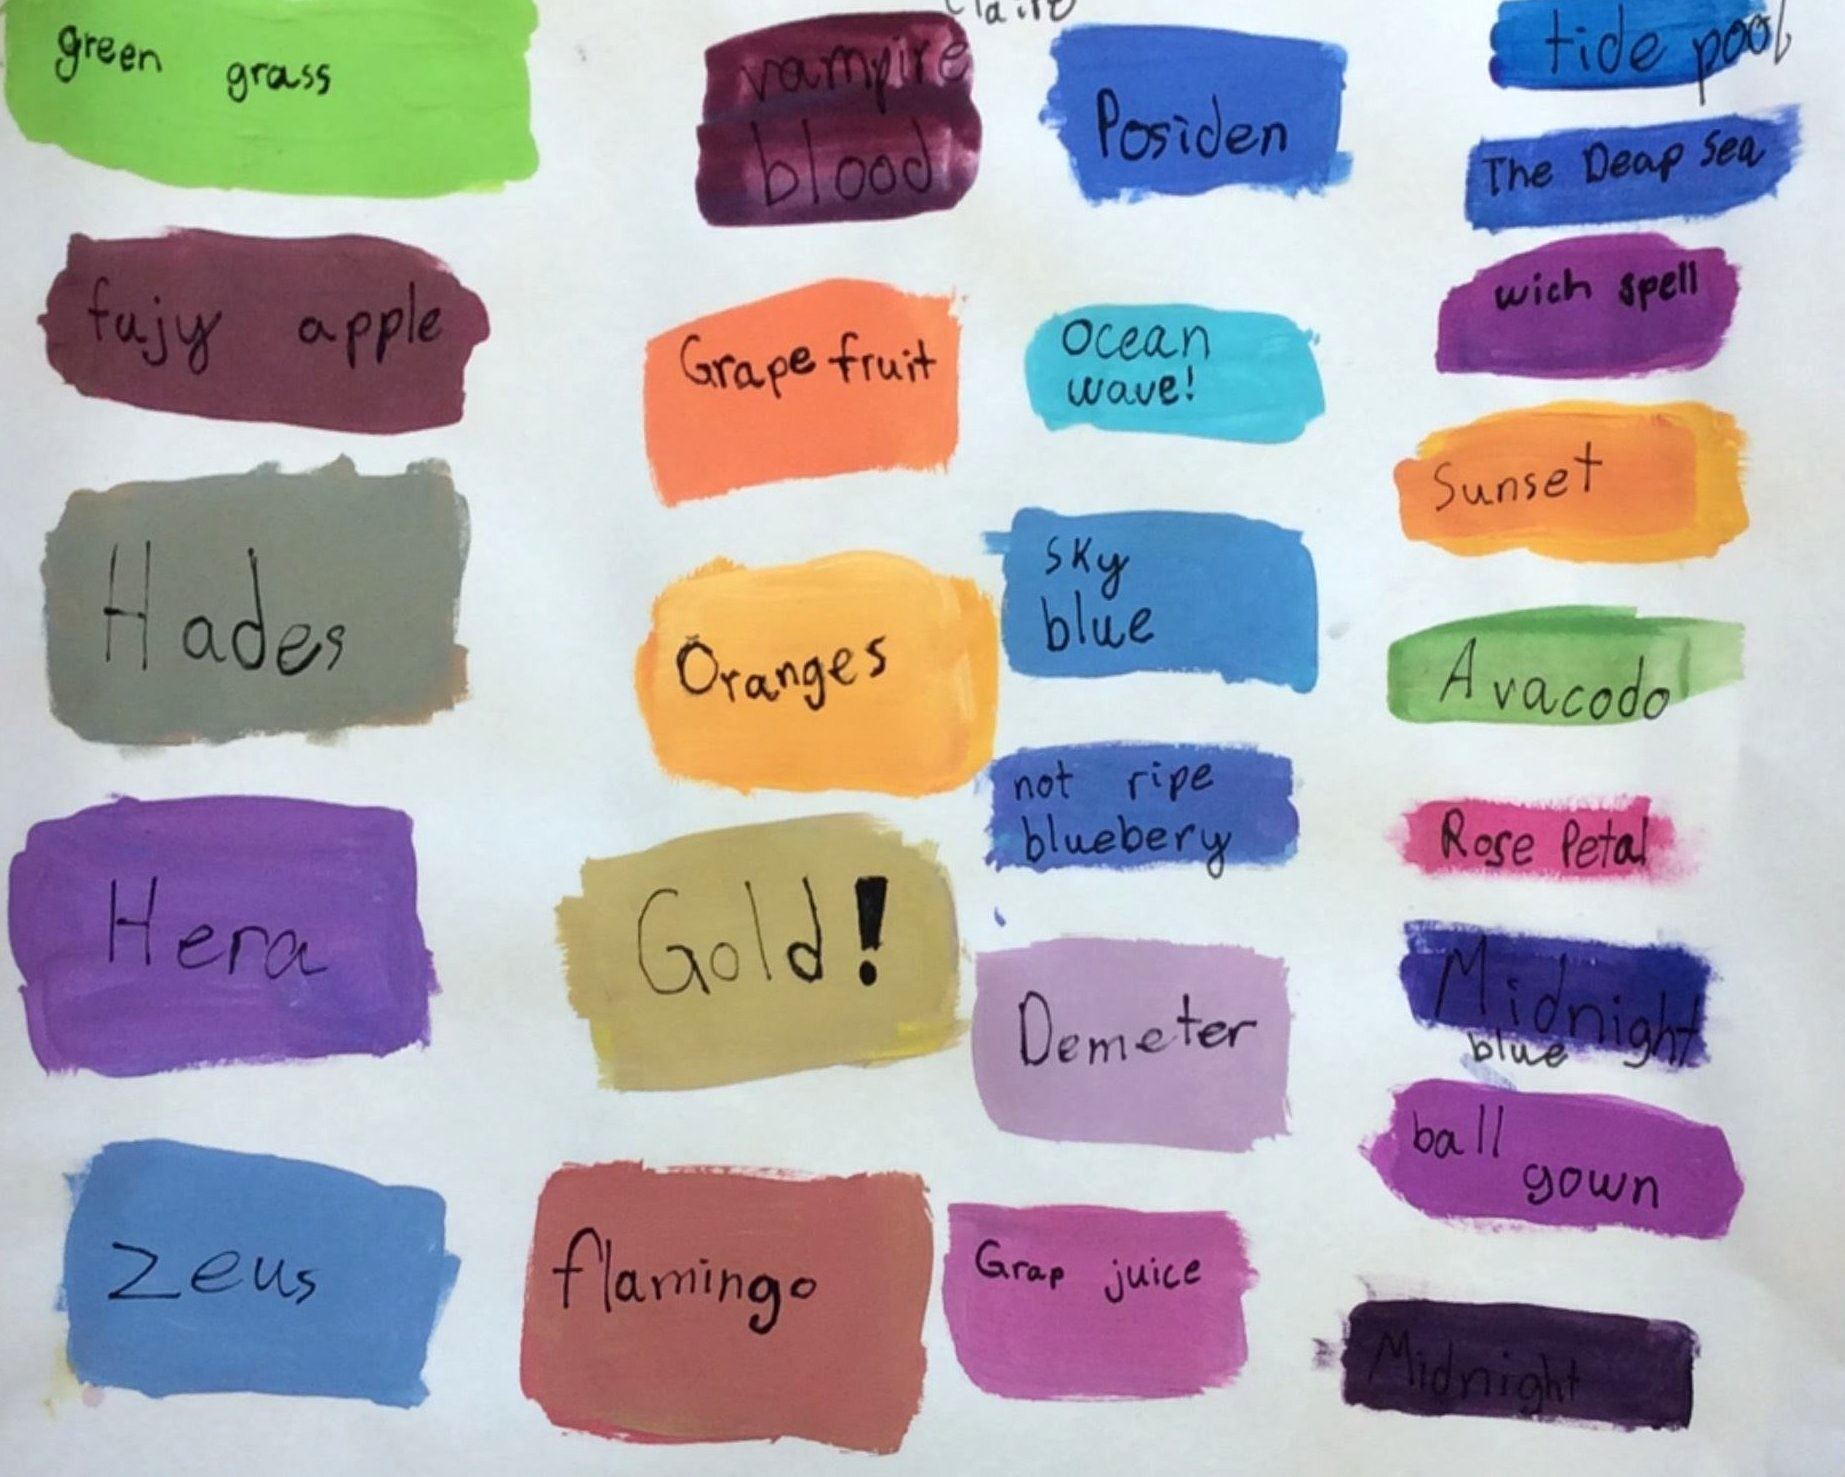 Claire
green grass
fujy apple
Hades
Hera
Zeus
vampire
blood
Grapefruit
Oranges
Gold!
flamingo
Posiden
Ocean
wave!
sky
blue
not ripe
bluebery
Demeter
Grap juice
tide pool
The Deap Sea
wich spell
Sunset
Avacodo
Rose Petal
Midnight
blue
ball
gown
Midnight